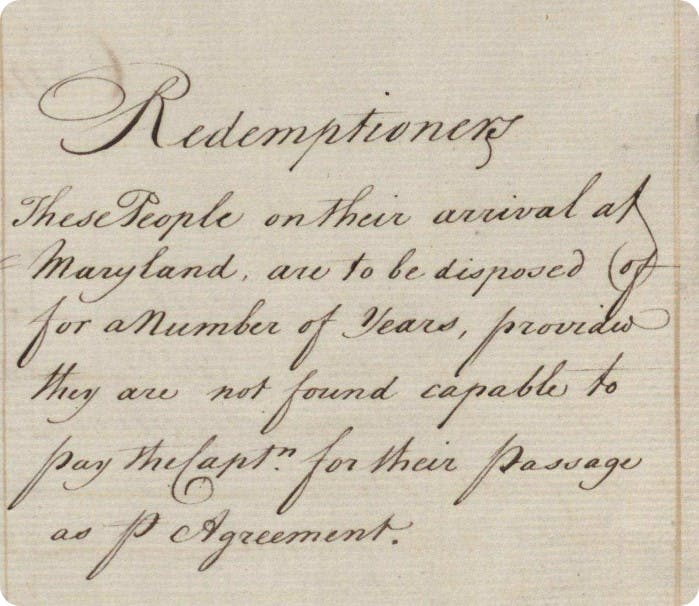 Redemptioners
These People on their arrival at
Maryland, are to be disposed (of
for a Number of Years, provided
they are not found capable to
pay the Captn. for their Passage
as P Agreement.